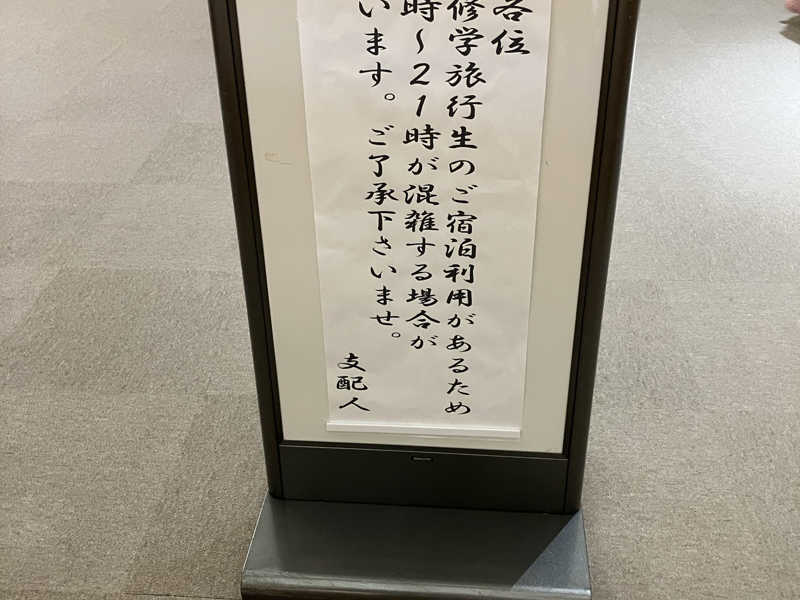 各位
修学旅行生のご宿泊利用があるため
時～21時が混雑する場合が
います。ご了承下さいませ。
支配人